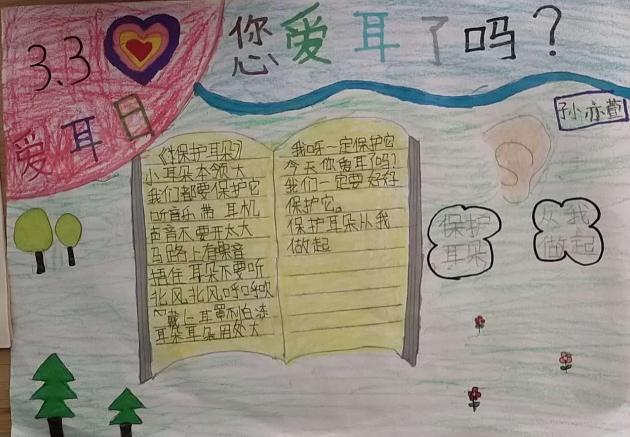 3.3
爱耳日
您爱耳了吗？
孙亦萱
《保护耳朵》
小耳朵本领大
我们都要保护它
听音乐带耳机
声音不要开太大
马路上有噪音
捂住耳朵不要听
北风北风呼呼吹
戴上耳罩不怕冻
耳朵耳朵用处大
我呀一定保护它
今天你爱耳了吗？
我们一定要好好
保护它。
保护耳朵从我
做起
保护
耳朵
从我
做起